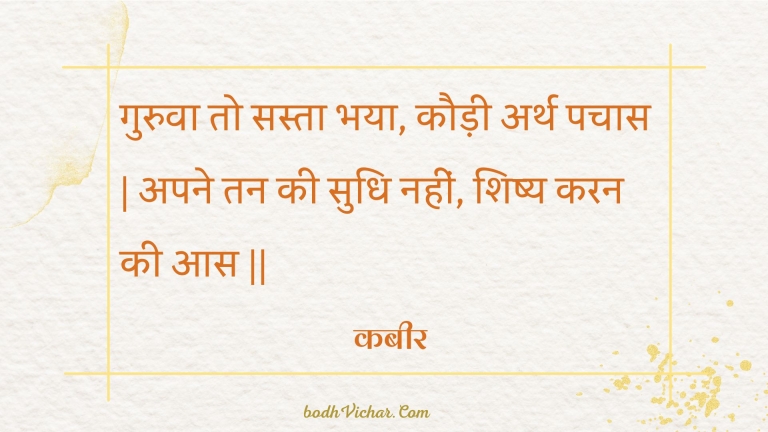 गुरुवा तो सस्ता भया, कौड़ी अर्थ पचास
| अपने तन की सुधि नहीं, शिष्य करन
की आस ||
कबीर
bodhVichar.Com